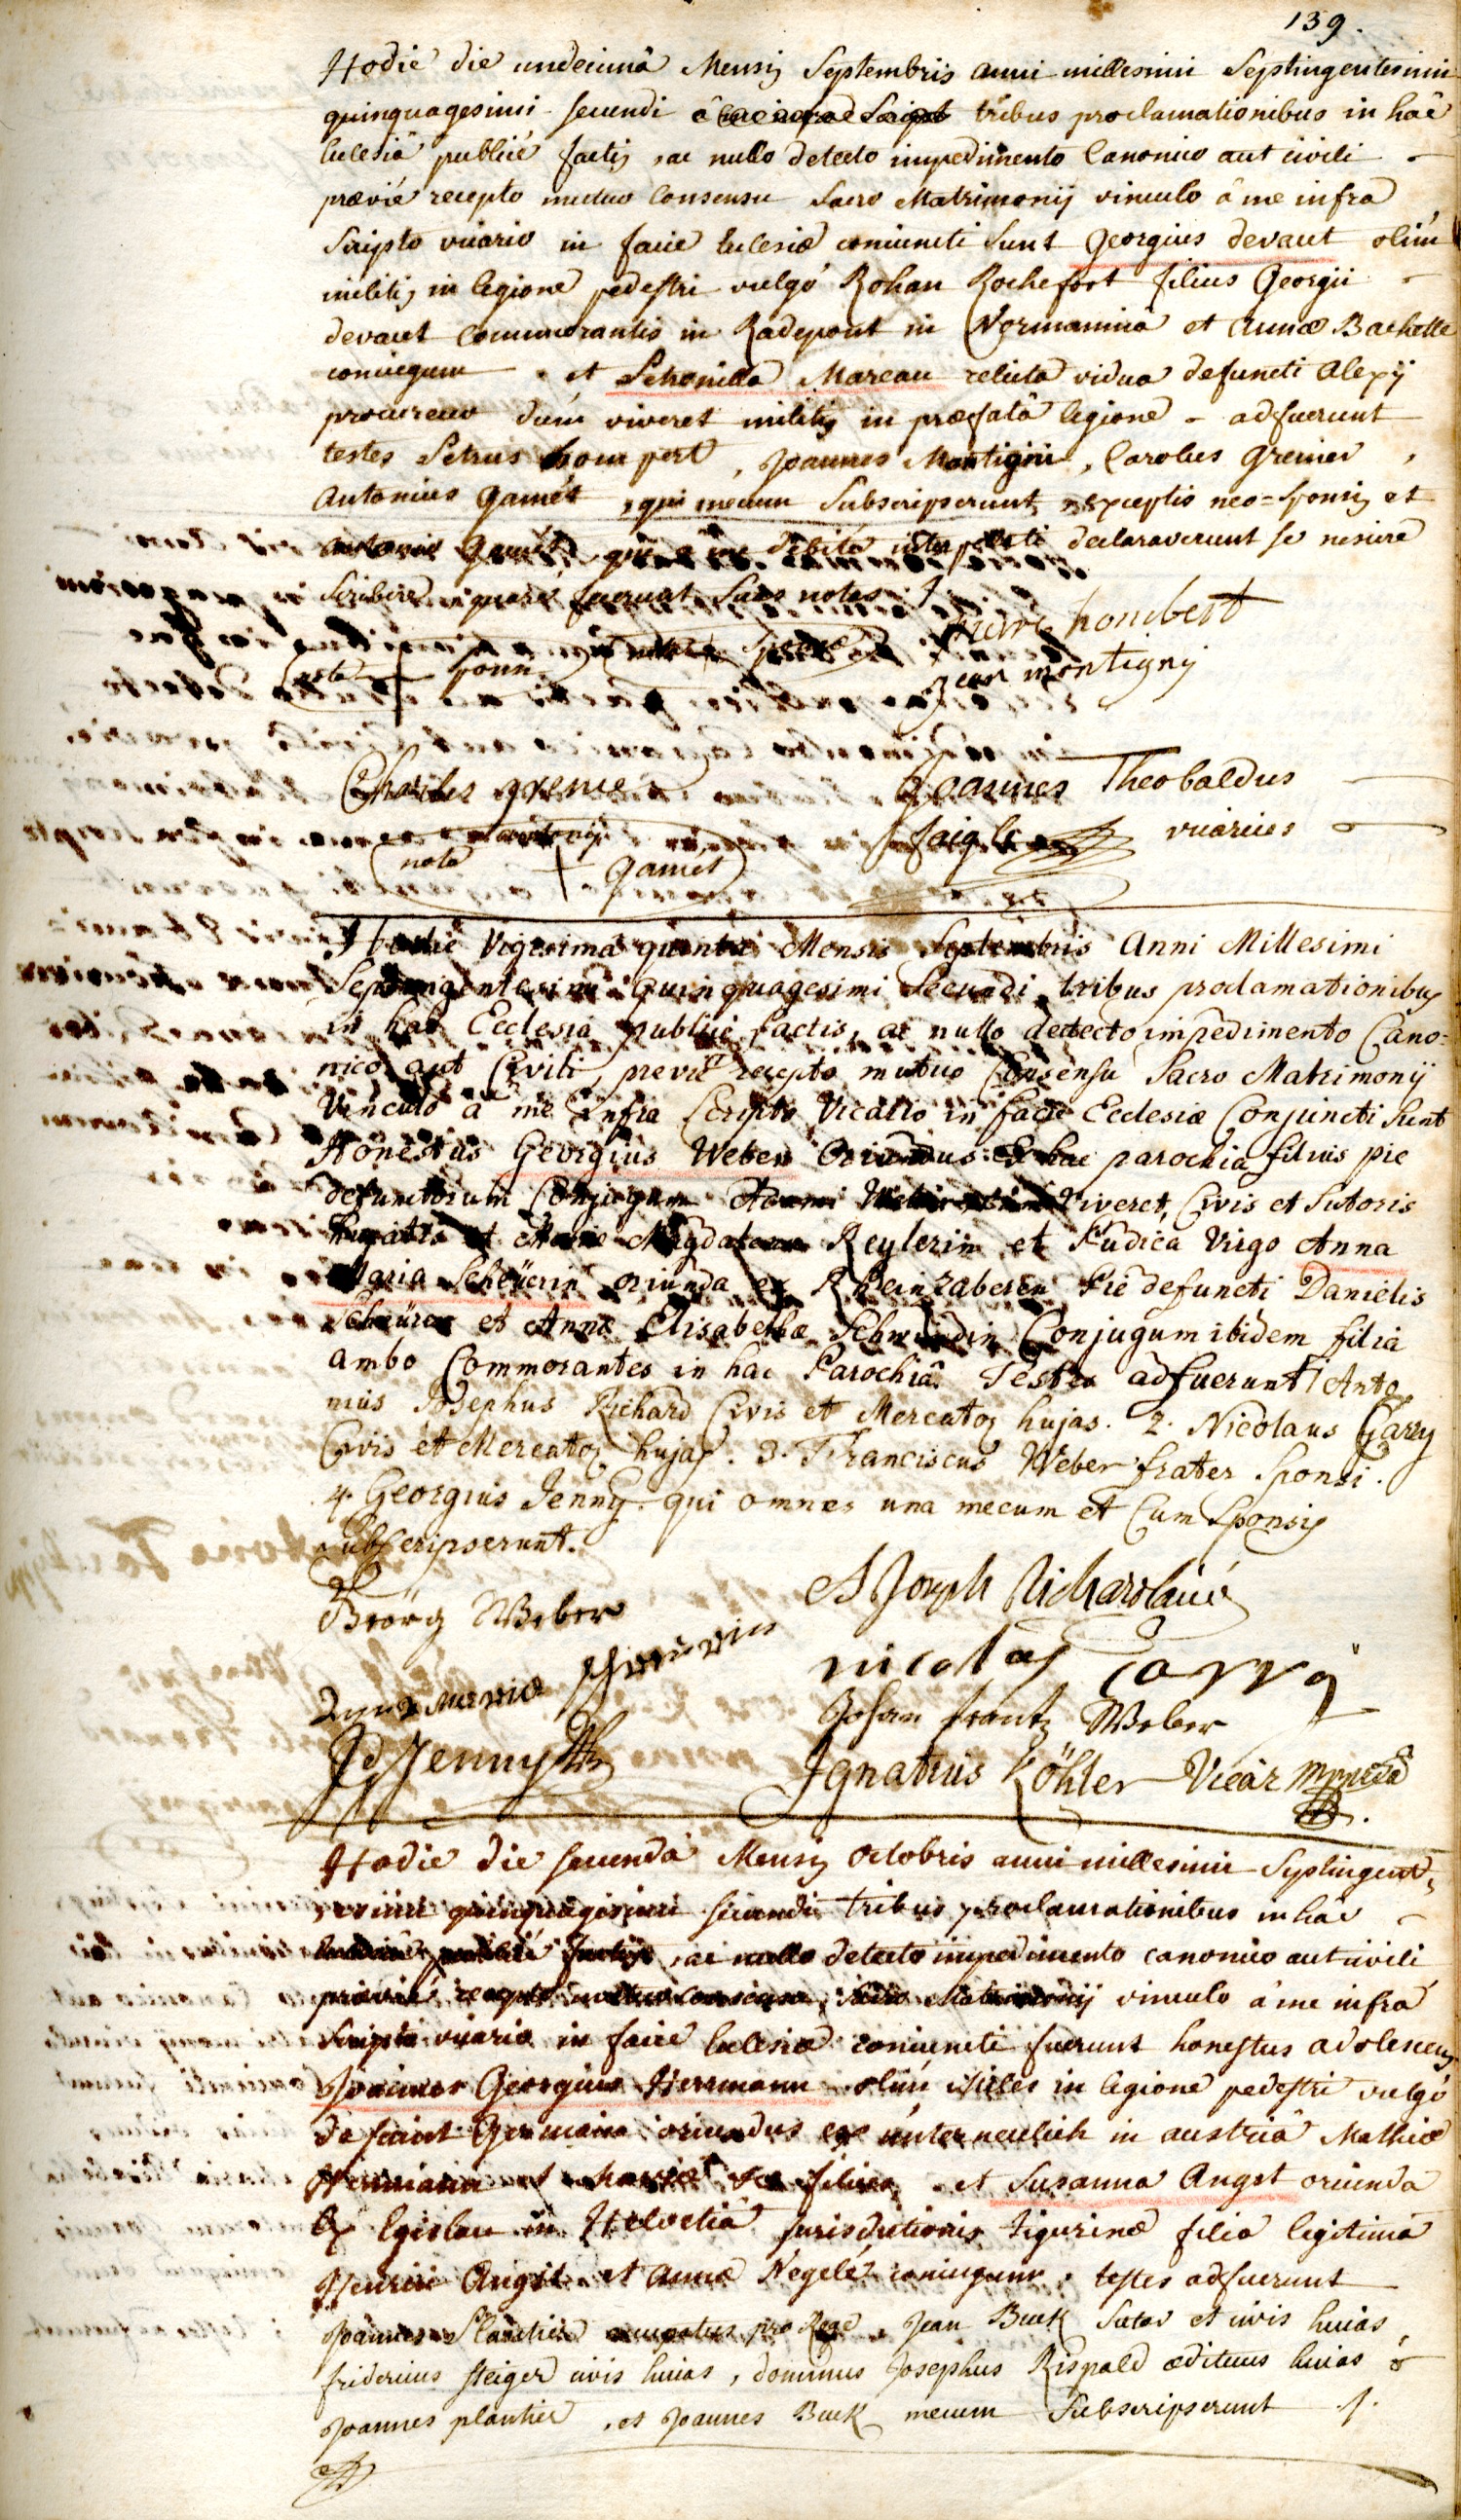 139.
Hodie die undecimâ Mensis Septembris anni millesimi Septingentesimi
quinquagesimi secundi tribus proclamationibus in hâc
Ecclesiâ publicé factis, ac nullo detecto impedimento Canonico aut civili
prævié recepto mutuo Consensu Sacro Matrimonij vinculo â me infra
Scripto vicario in facie Ecclesiæ coniuncti Sunt Georgius devaut olim
militis in legione pedestri vulgó Rohan Rochefort filius Georgii
devaut Commorantis in Radepont in Normanniâ et Annæ Bachelle
coniugum et Petronilla Mareau relicta vidua defuncti Alexij
procureur dum viveret militis in præfatâ legione - adfuerunt
testes Petrus hompert, Joannes Montigni, Carolus Grenier,
Antonius Gamét, qui mecum Subscripserunt, exceptis neo=sponsis et
antonio Gamét qui a me debité interpellati declaraverunt se nescire
Scribere quaré fecerunt Suas notas
pierre hombert
nota + Spon
nota Sponsæ
Jean montigny
Charles grenie
Joannes Theobaldus
faigle vicarius
nota antonij + Gamét
Hodie Vigesima quinta Mensis Septembris Anni Millesimi
Septingentesimi Quinquagesimi Secundi, tribus proclamationibus
in hac Ecclesia publice factis, ac nullo detecto impedimento Cano=
nico aut Civili, previe recepto mutuo Consensu Sacro Matrimonij
Vinculo a me infra Scripto Vicario in facie Ecclesiæ Conjuncti Sunt
Honestus Georgius Weber Oriundus Ex hac parochia filius pie
defunctorum Conjugum Weber dum Viveret, Civis et Sutoris
hujatis et Mariæ Magdalenæ Reylerin et Pudica Virgo Anna
Maria Scheüerin oriunda ex Rheinzaberen Pie defuncti Danielis
Scheürer et Annæ Elisabethæ Schmidin Conjugum ibidem filia
ambo Commorantes in hac Parochiâ. Testes adfuerunt 1 Anto
nius Josephus Richard Civis et Mercator hujas. 2. Nicolaus Garry
Civis et Mercator hujas. 3. Franciscus Weber frater Sponsi.
4. Georgius Jenny. qui omnes una mecum et Cum Sponsis
subscripserunt.
Geörg Weber
A Joseph Richard
Anna Maria Scheurerin
nicolas Carry
Johan frantz Weber
Jg Jenny
Ignatius Köhler Vicar
Hodie die secundâ Mensis Octobris anni millesimi Septingent=
esimi quinquagesimi secundi tribus proclamationibus in hâc
Ecclesiâ publicé factis, ac nullo detecto impedimento canonico aut civili
prævié recepto mutuo consensu, Sacro Matrimonij vinculo â me infra
Scripto vicario in facie Ecclesiæ coniuncti fuerunt honestus adolescens
Joannes Georgius Herrmann olim Miles in legione pedestri vulgó
de saint Germain oriundus ex unterneulich in austriâ Mathiæ
Herrmann et Mariæ filius, et Susanna Angst oriunda
Ex Egislau in Helvetiâ jurisdictionis tigurinæ filia legitima
Henrici Angst et annæ Negelé coniugum, testes adfuerunt
Joannes Plantier pro Rege, Jean Buck Sutor et civis huias,
fridericus Steiger civis huias, dominus Josephus Rispald ædituus huias
Joannes plantier, et Joannes Buck mecum Subscripserunt